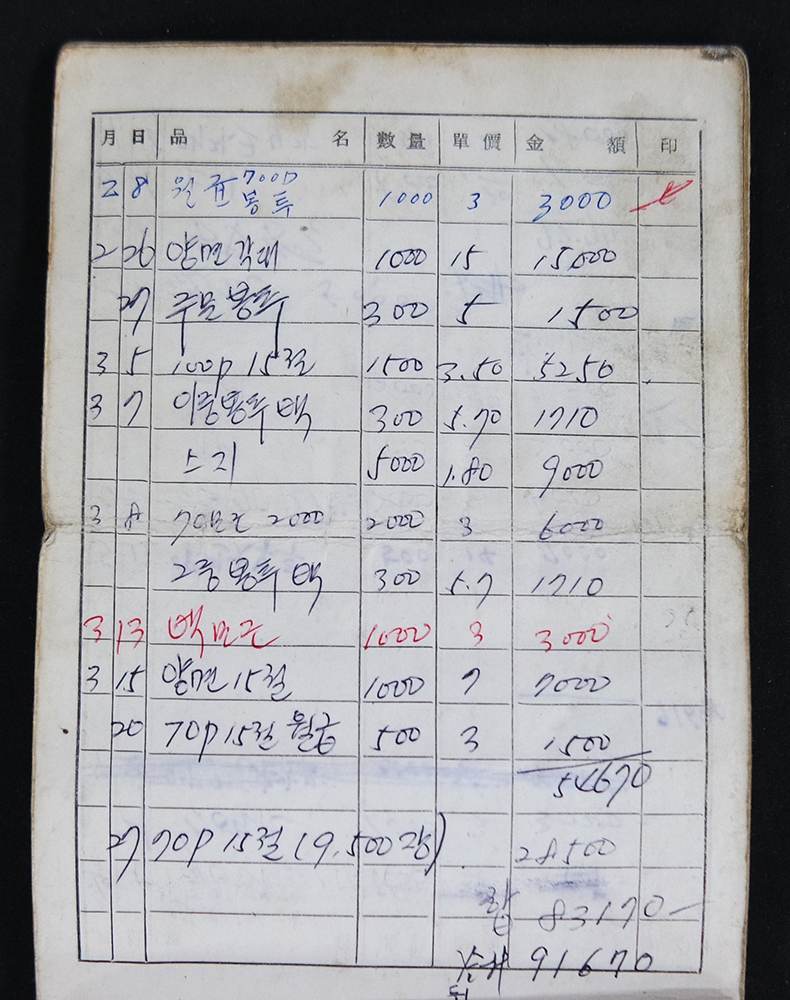 月 日 品 名 數量 單價 金 額 印
2 8 월급 700 봉투 1000 3 3000
2 26 양면각대 1000 15 15,000
27 주문봉투 300 5 1500
3 5 100p 15절 1500 3.50 5250
3 7 이중봉투 백 300 5.70 1710
스지 5000 1.80 9000
3 8 70모조 2000 2000 3 6000
2중봉투 백 300 5.7 1710
3 13 백모조 1000 3 3000
3 15 양면 15절 1000 7 7000
20 70p 15절 월급 500 3 1500
54670
27 70p 15절 (9,500장) 28500
합 83170
91670